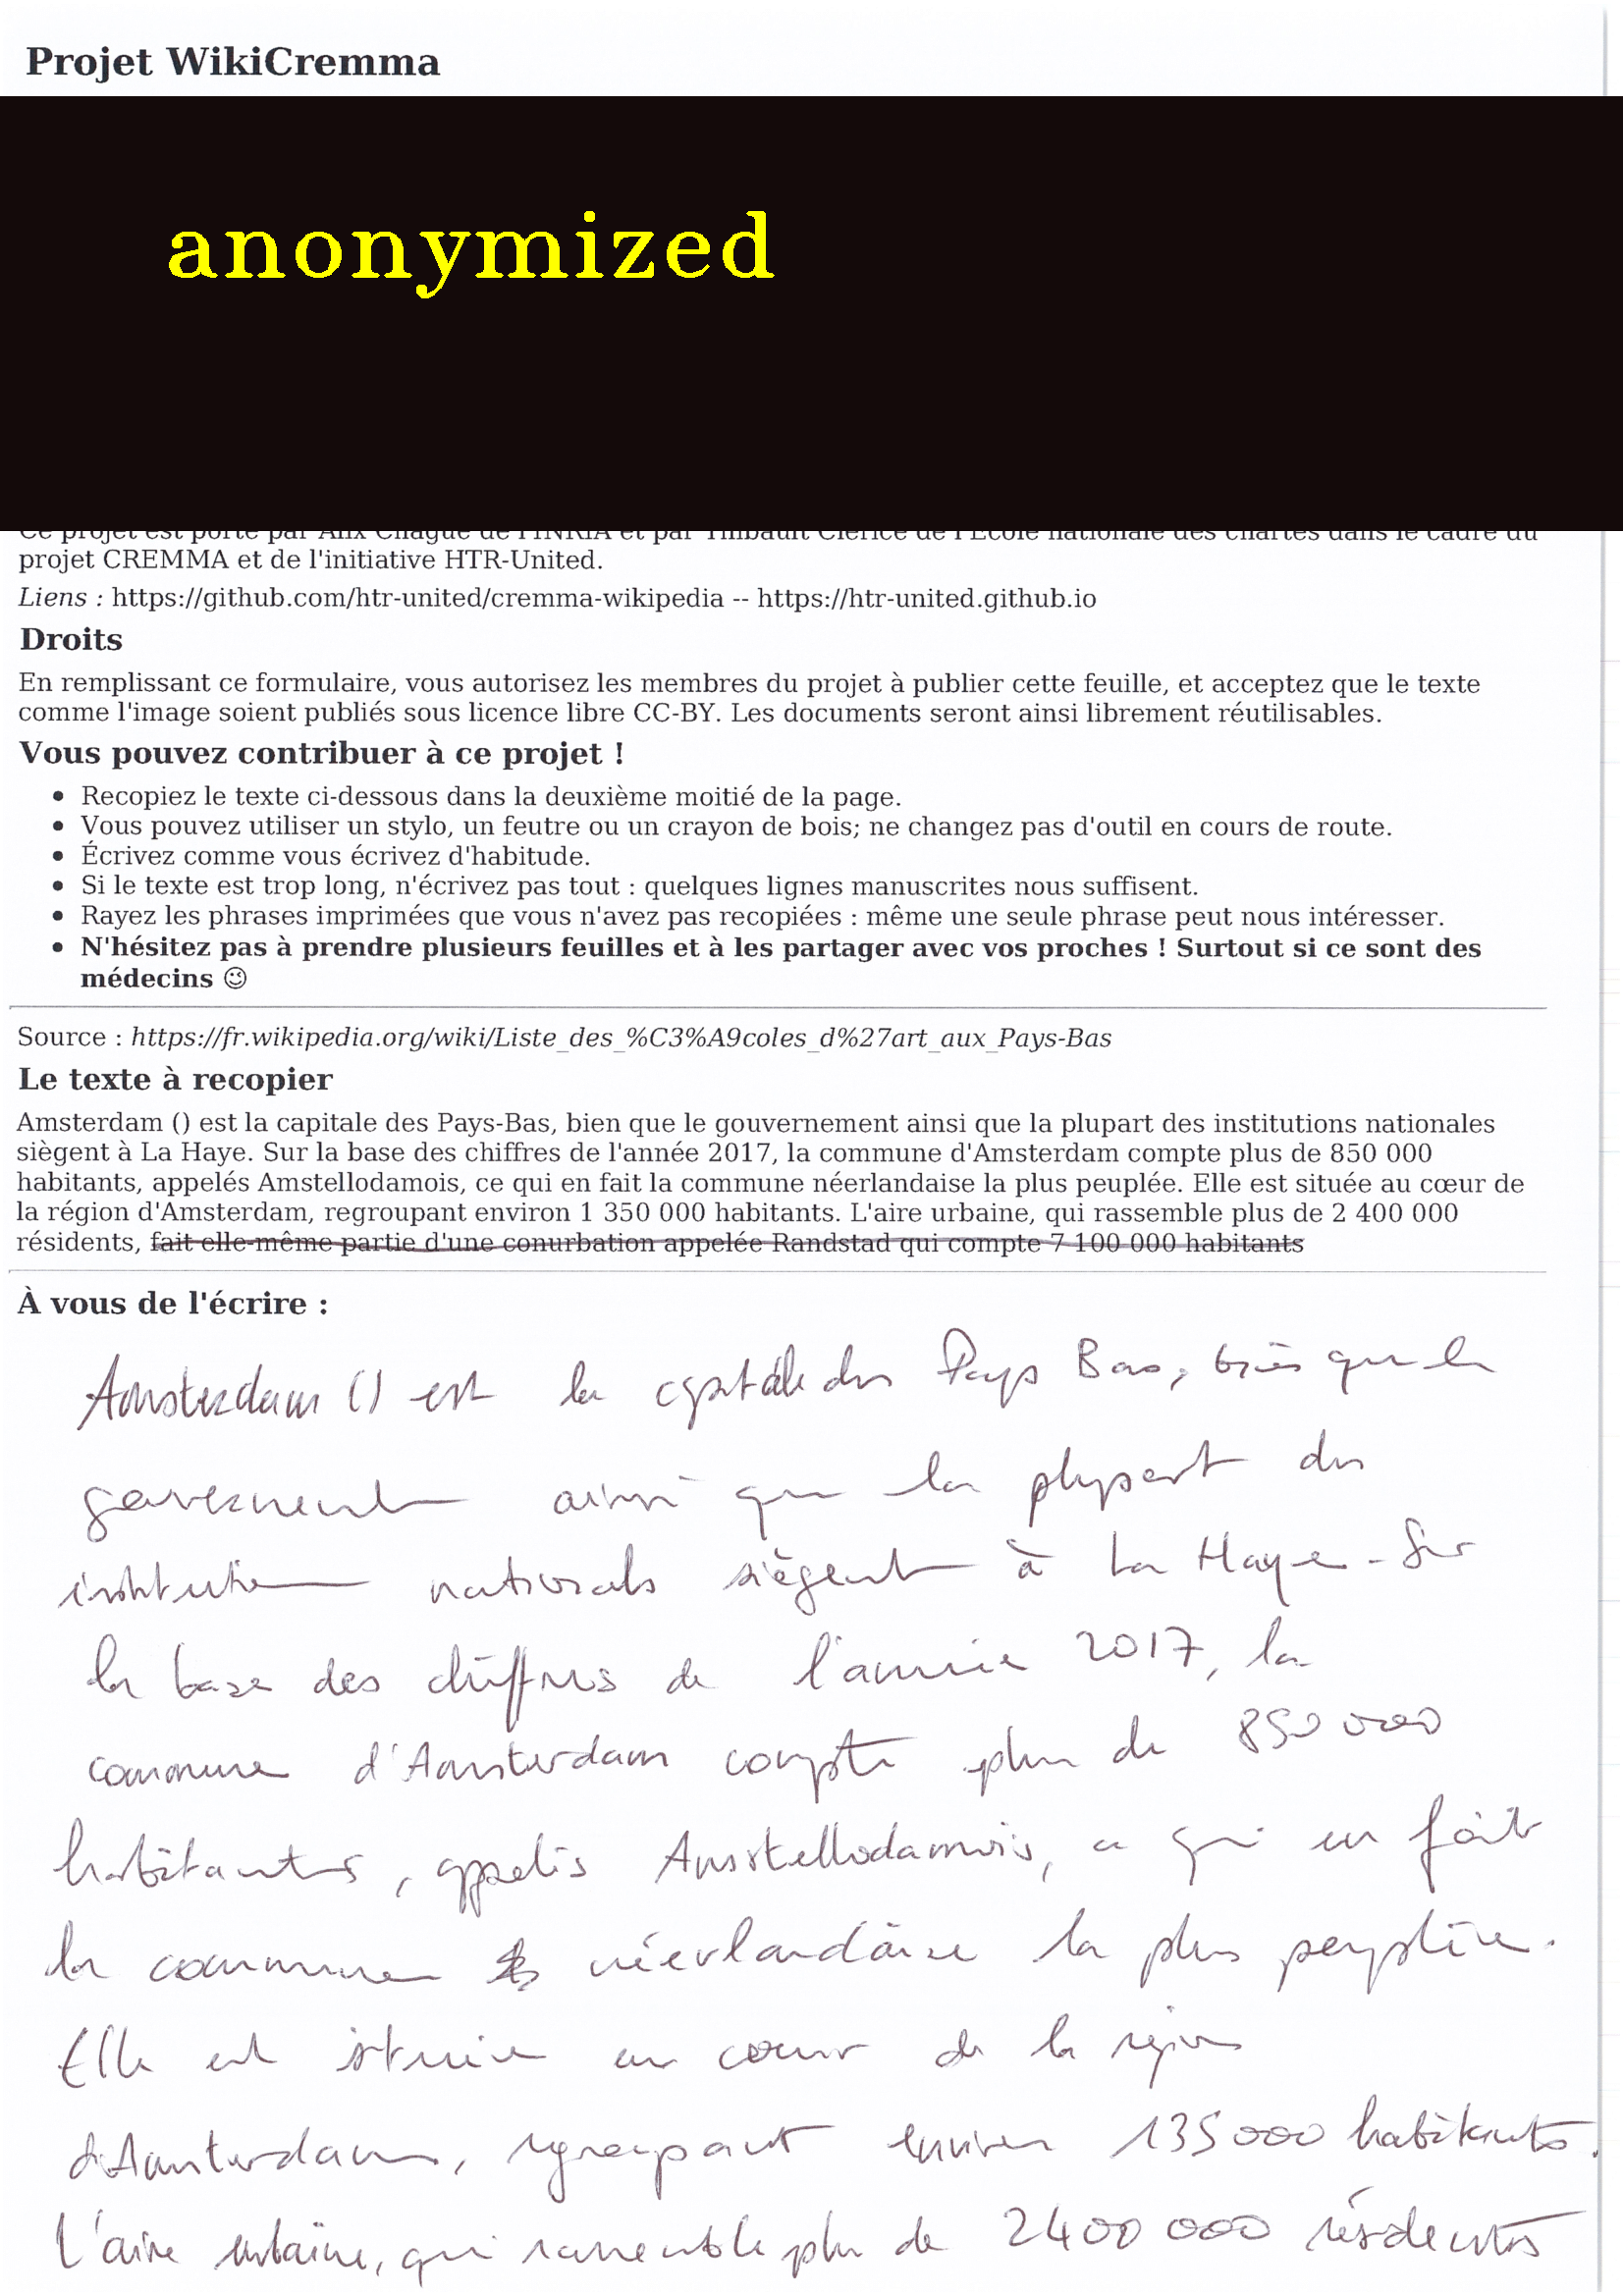 Projet WikiCremma
anonymized
Ce projet est porté par Alix Chagué de l'INRIA et par Thibault Clérice de l'École nationale des chartes dans le cadre du
projet CREMMA et de l'initiative HTR-United.
Liens : https://github.com/htr-united/cremma-wikipedia -- https://htr-united.github.io
Droits
En remplissant ce formulaire, vous autorisez les membres du projet à publier cette feuille, et acceptez que le texte
comme l'image soient publiés sous licence libre CC-BY. Les documents seront ainsi librement réutilisables.
Vous pouvez contribuer à ce projet !
• Recopiez le texte ci-dessous dans la deuxième moitié de la page.
• Vous pouvez utiliser un stylo, un feutre ou un crayon de bois; ne changez pas d'outil en cours de route.
• Écrivez comme vous écrivez d'habitude.
• Si le texte est trop long, n'écrivez pas tout : quelques lignes manuscrites nous suffisent.
• Rayez les phrases imprimées que vous n'avez pas recopiées : même une seule phrase peut nous intéresser.
• N'hésitez pas à prendre plusieurs feuilles et à les partager avec vos proches ! Surtout si ce sont des
médecins 😉
Source : https://fr.wikipedia.org/wiki/Liste_des_%C3%A9coles_d%27art_aux_Pays-Bas
Le texte à recopier
Amsterdam () est la capitale des Pays-Bas, bien que le gouvernement ainsi que la plupart des institutions nationales
siègent à La Haye. Sur la base des chiffres de l'année 2017, la commune d'Amsterdam compte plus de 850 000
habitants, appelés Amstellodamois, ce qui en fait la commune néerlandaise la plus peuplée. Elle est située au cœur de
la région d'Amsterdam, regroupant environ 1 350 000 habitants. L'aire urbaine, qui rassemble plus de 2 400 000
résidents, fait elle-même partie d'une conurbation appelée Randstad qui compte 7 100 000 habitants
À vous de l'écrire :
Amsterdam () est la capitale des Pays Bas, bien que le
gouvernement ainsi que la plupart des
institution nationals siègent à La Haye. Sur
la base des chiffres de l'année 2017, la
commune d'Amsterdam compte plus de 850 000
habitants, appelés Amstellodamois, ce qui en fait
la commune néerlandaise la plus peuplée.
Elle est située au coeur de la région
d'Amsterdam, regroupant environ 135 000 habitants.
L'aire urbaine, qui rassemble plus de 2400 000 résidents